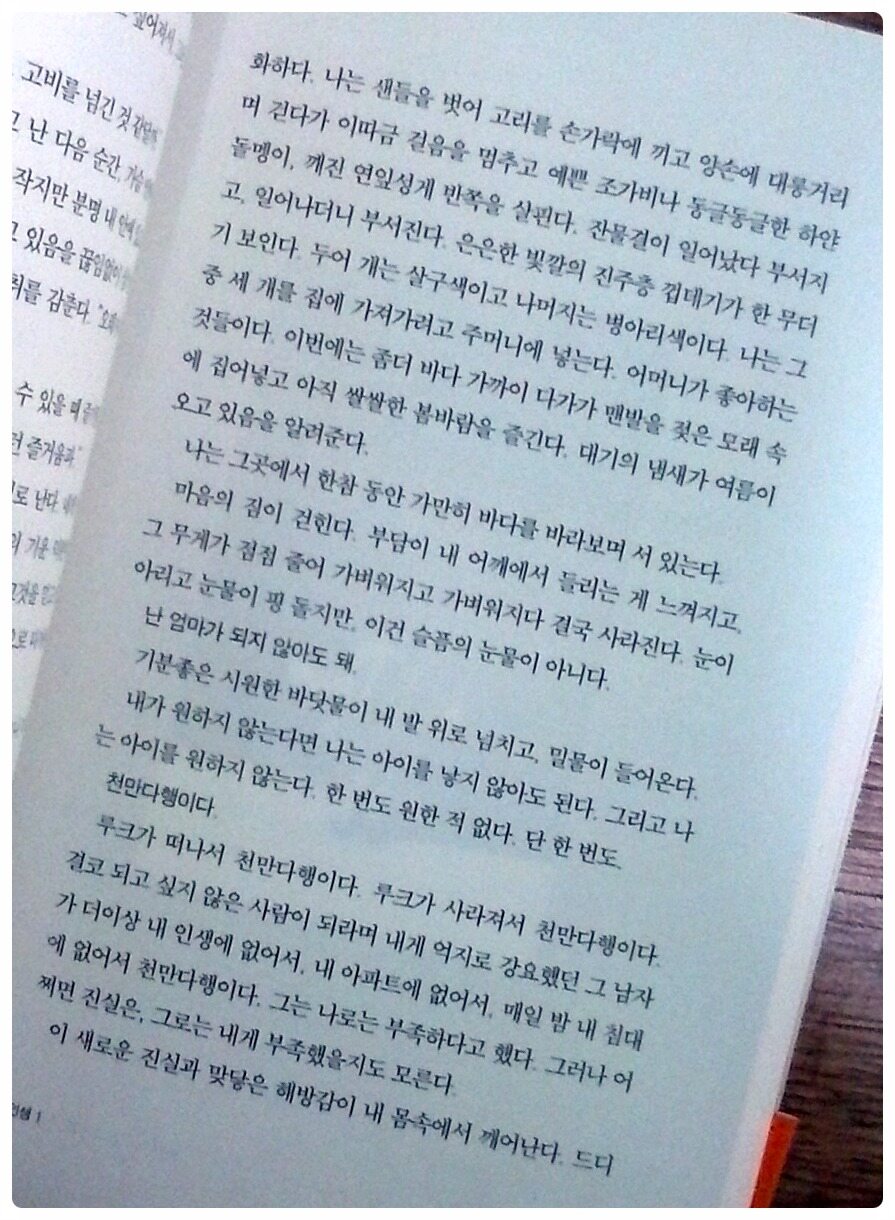 고비를 넘긴 것 같
난 다음 순간,
작지만 분명 내 안에
있음을 끊임없이
취를 감춘다.
수 있을 때
즐거움과
로 난다.
화하다. 나는 샌들을 벗어 고리를 손가락에 끼고 양손에 대롱거리
며 걷다가 이따금 걸음을 멈추고 예쁜 조가비나 동글동글한 하얀
돌멩이, 깨진 연잎성게 반쪽을 살핀다. 잔물결이 일어났다 부서지
고, 일어나더니 부서진다. 은은한 빛깔의 진주층 껍데기가 한 무더
기 보인다. 두어 개는 살구색이고 나머지는 병아리색이다. 나는 그
중 세 개를 집에 가져가려고 주머니에 넣는다. 어머니가 좋아하는
것들이다. 이번에는 좀더 바다 가까이 다가가 맨발을 젖은 모래 속
에 집어넣고 아직 쌀쌀한 봄바람을 즐긴다. 대기의 냄새가 여름이
오고 있음을 알려준다.
나는 그곳에서 한참 동안 가만히 바다를 바라보며 서 있는다.
마음의 짐이 걷힌다. 부담이 내 어깨에서 들리는 게 느껴지고,
그 무게가 점점 줄어 가벼워지고 가벼워지다 결국 사라진다. 눈이
아리고 눈물이 핑 돌지만, 이건 슬픔의 눈물이 아니다.
난 엄마가 되지 않아도 돼.
기분좋은 시원한 바닷물이 내 발 위로 넘치고, 밀물이 들어온다.
내가 원하지 않는다면 나는 아이를 낳지 않아도 된다. 그리고 나
는 아이를 원하지 않는다. 한 번도 원한 적 없다. 단 한 번도.
천만다행이다.
루크가 떠나서 천만다행이다. 루크가 사라져서 천만다행이다.
결코 되고 싶지 않은 사람이 되라며 내게 억지로 강요했던 그 남자
가 더이상 내 인생에 없어서, 내 아파트에 없어서, 매일 밤 내 침대
에 없어서 천만다행이다. 그는 나로는 부족하다고 했다. 그러나 어
쩌면 진실은, 그로는 내게 부족했을지도 모른다.
이 새로운 진실과 맞닿은 해방감이 내 몸속에서 깨어난다. 드디